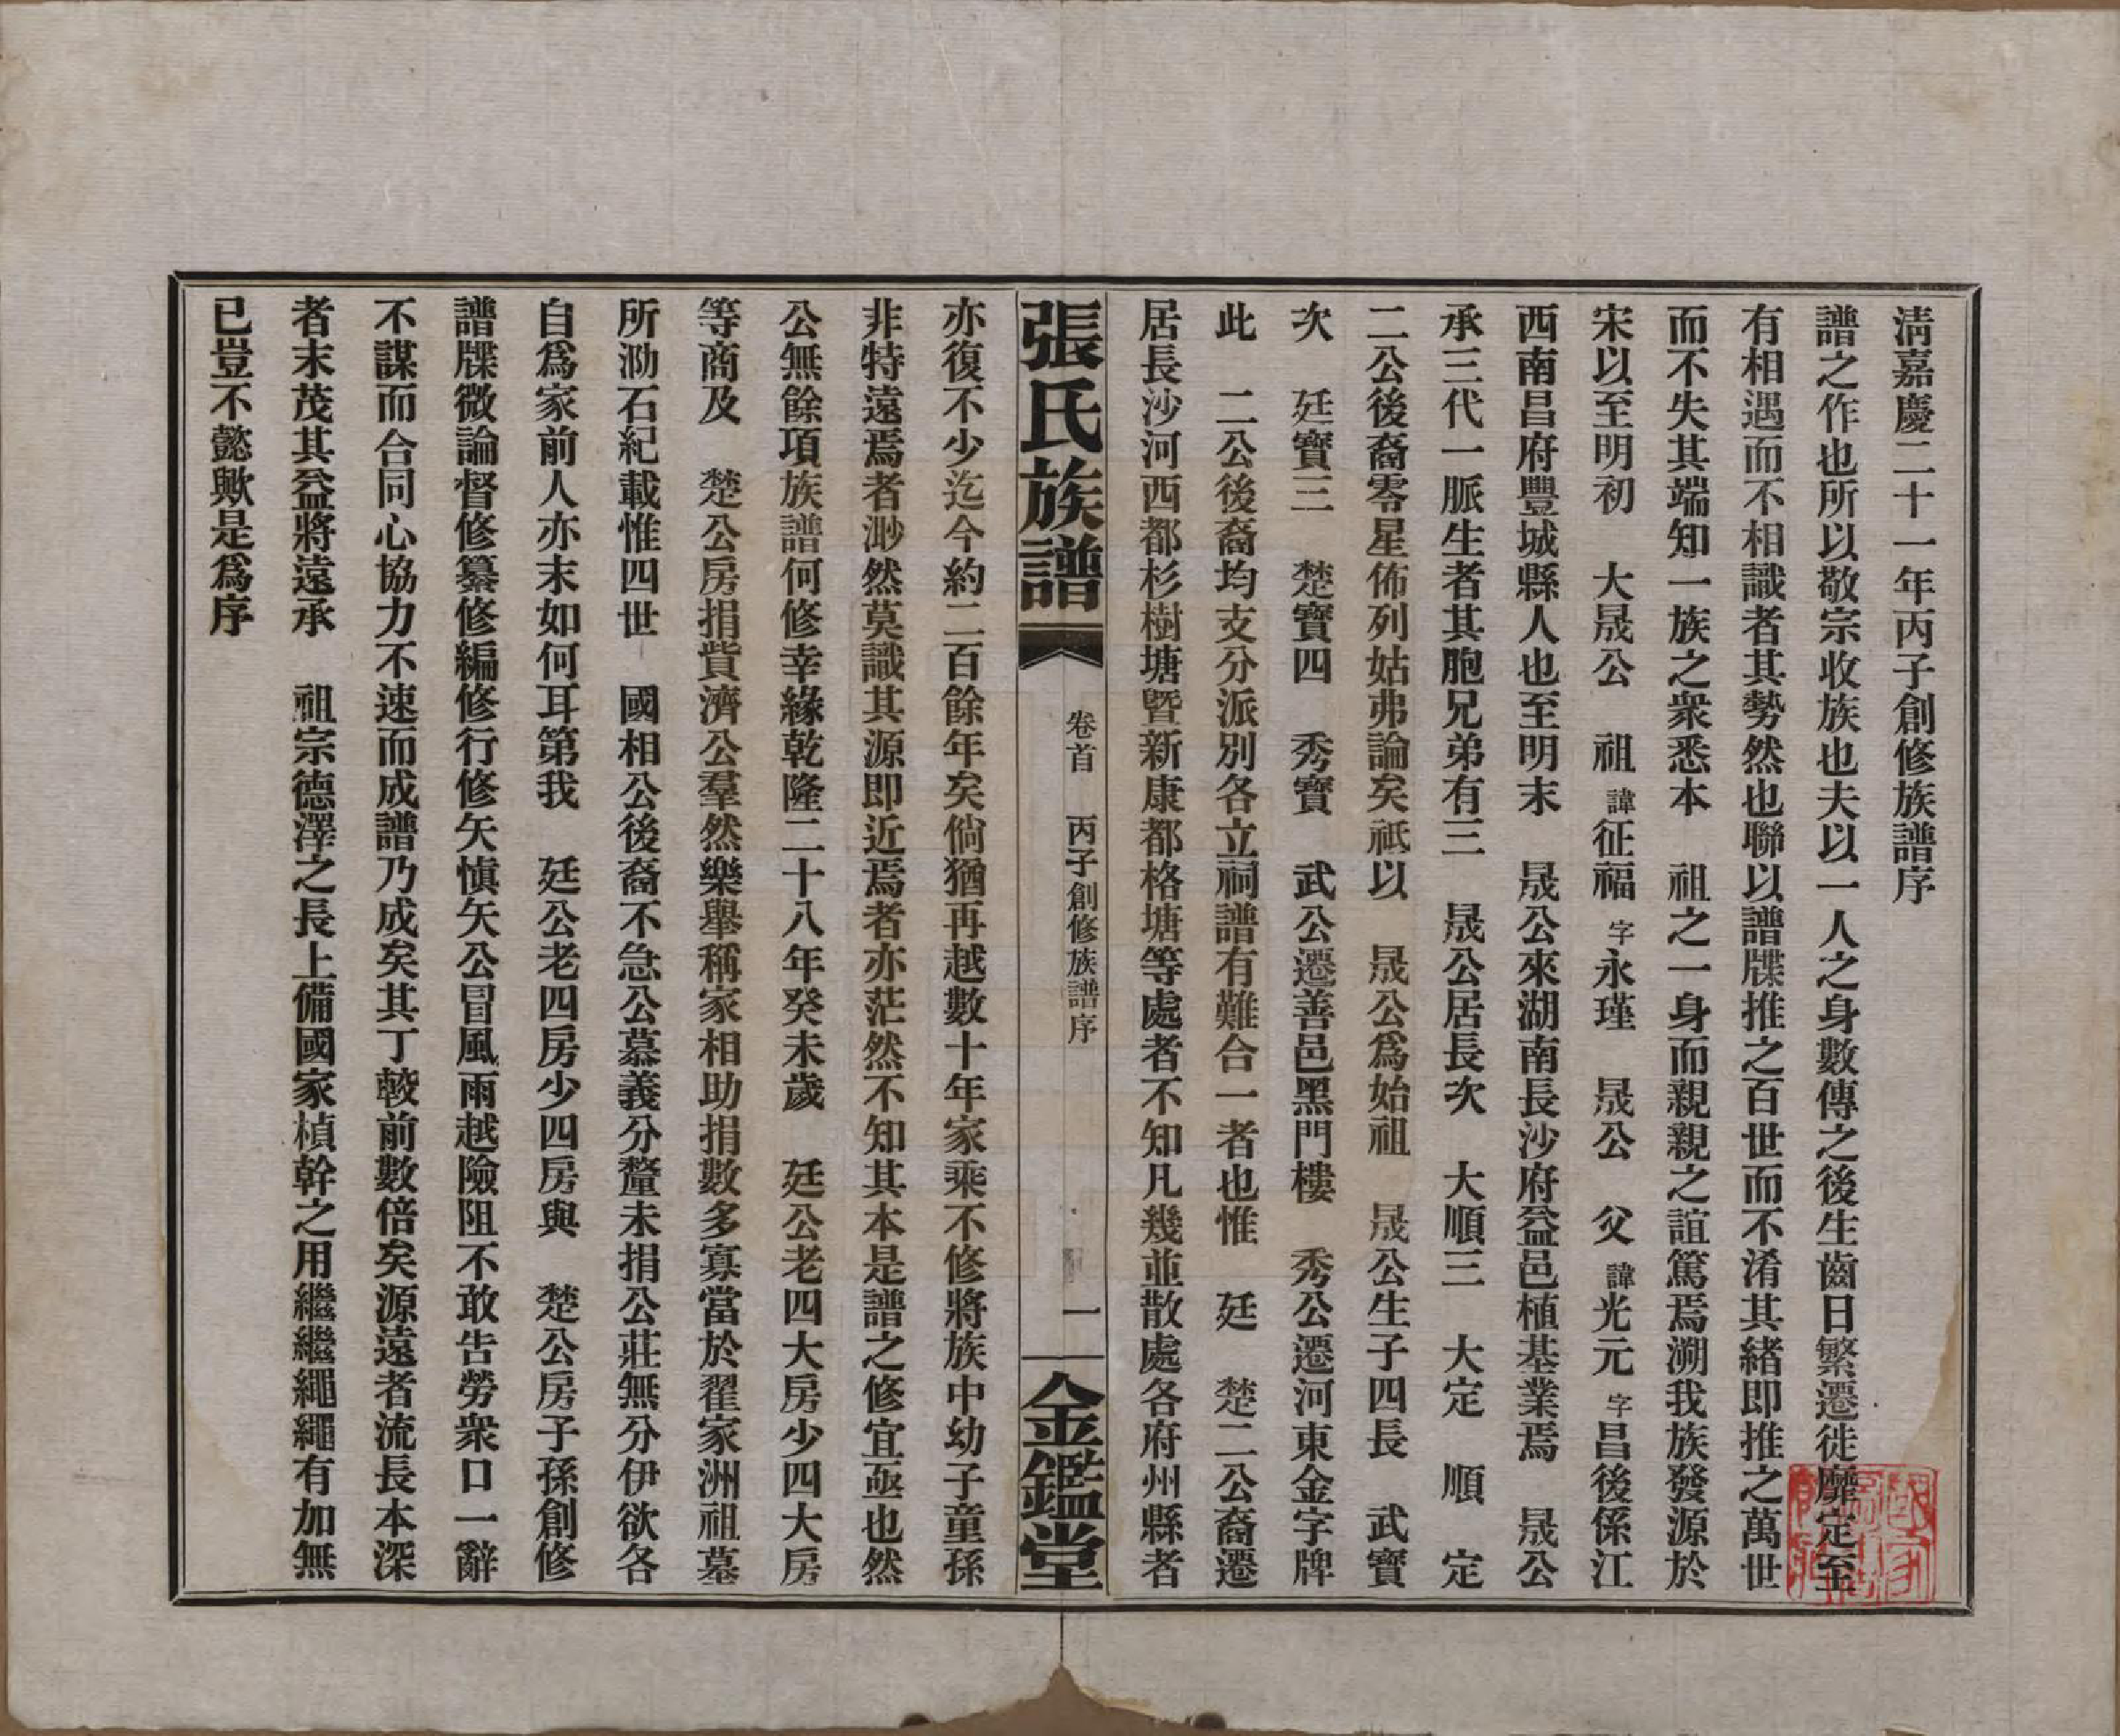 清嘉慶二十一年丙子創修族譜序
譜之作也所以敬宗收族也夫以一人之身數傳之後生齒日繁遷徙靡定至
有相遇而不相識者其勢然也聯以譜牒推之百世而不淆其緒即推之萬世
而不失其端知一族之衆悉本　祖之一身而親親之誼篤焉溯我族發源於
宋以至明初　大晟公　祖諱征福字永瑾　晟公　父諱光元字昌後係江
西南昌府豐城縣人也至明末　晟公來湖南長沙府益邑植基業焉　晟公
承三代一脈生者其胞兄弟有三　晟公居長次　大順三　大定　順　定
二公後裔零星佈列姑弗論矣祗以　晟公爲始祖　晟公生子四長　武寶
次　廷寶三　楚寶四　秀寶　武公遷善邑黑門樓　秀公遷河東金字牌
此　二公後裔均支分派別各立祠譜有難合一者也惟　廷　楚二公裔遷
居長沙河西都杉樹塘暨新康都格塘等處者不知凡幾並散處各府州縣者
張氏族譜　卷首　丙子創修族譜序　一　金鑑堂
亦復不少迄今約二百餘年矣倘猶再越數十年家乘不修將族中幼子童孫
非特遠焉者渺然莫識其源即近焉者亦茫然不知其本是譜之修宜亟也然
公無餘項族譜何修幸緣乾隆二十八年癸未歲　廷公老四大房少四大房
等商及　楚公房捐貲濟公羣然樂舉稱家相助捐數多寡當於翟家洲祖墓
所泐石紀載惟四世　國相公後裔不急公慕義分釐未捐公莊無分伊欲各
自爲家前人亦末如何耳第我　廷公老四房少四房與　楚公房子孫創修
譜牒微論督修纂修編修行修矢愼矢公冒風雨越險阻不敢告勞衆口一辭
不謀而合同心協力不速而成譜乃成矣其丁較前數倍矣源遠者流長本深
者末茂其益將遠承　祖宗德澤之長上備國家楨幹之用繼繼繩繩有加無
已豈不懿歟是爲序